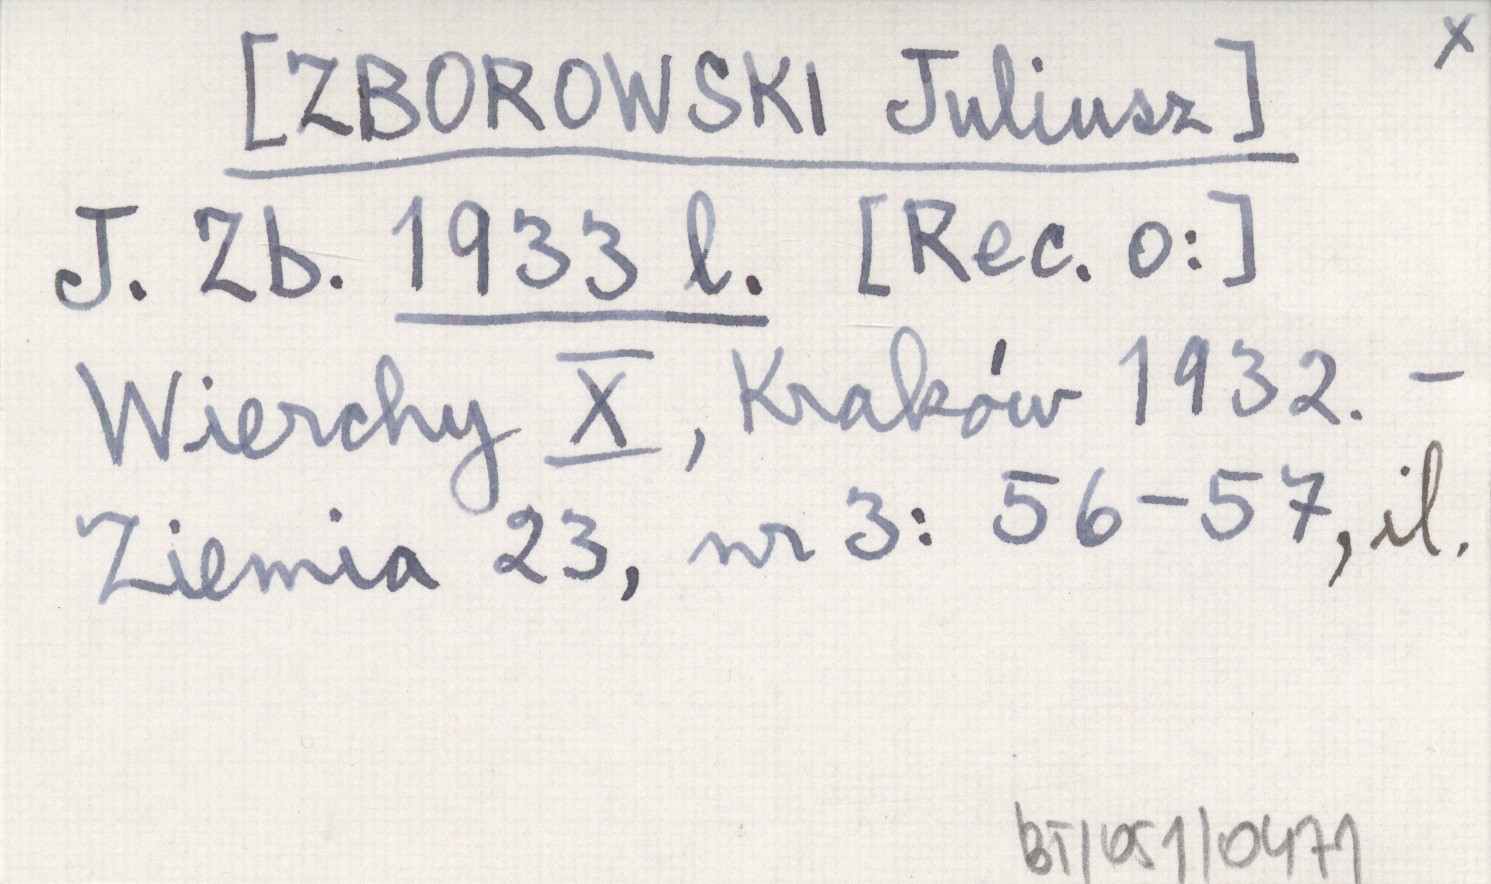 x
[ZBOROWSKI Juliusz]
J. Zb. 1933 l. [Rec. o:]
Wierchy X, Kraków 1932. –
Ziemia 23, nr 3: 56–57, il.
BT/051/0471